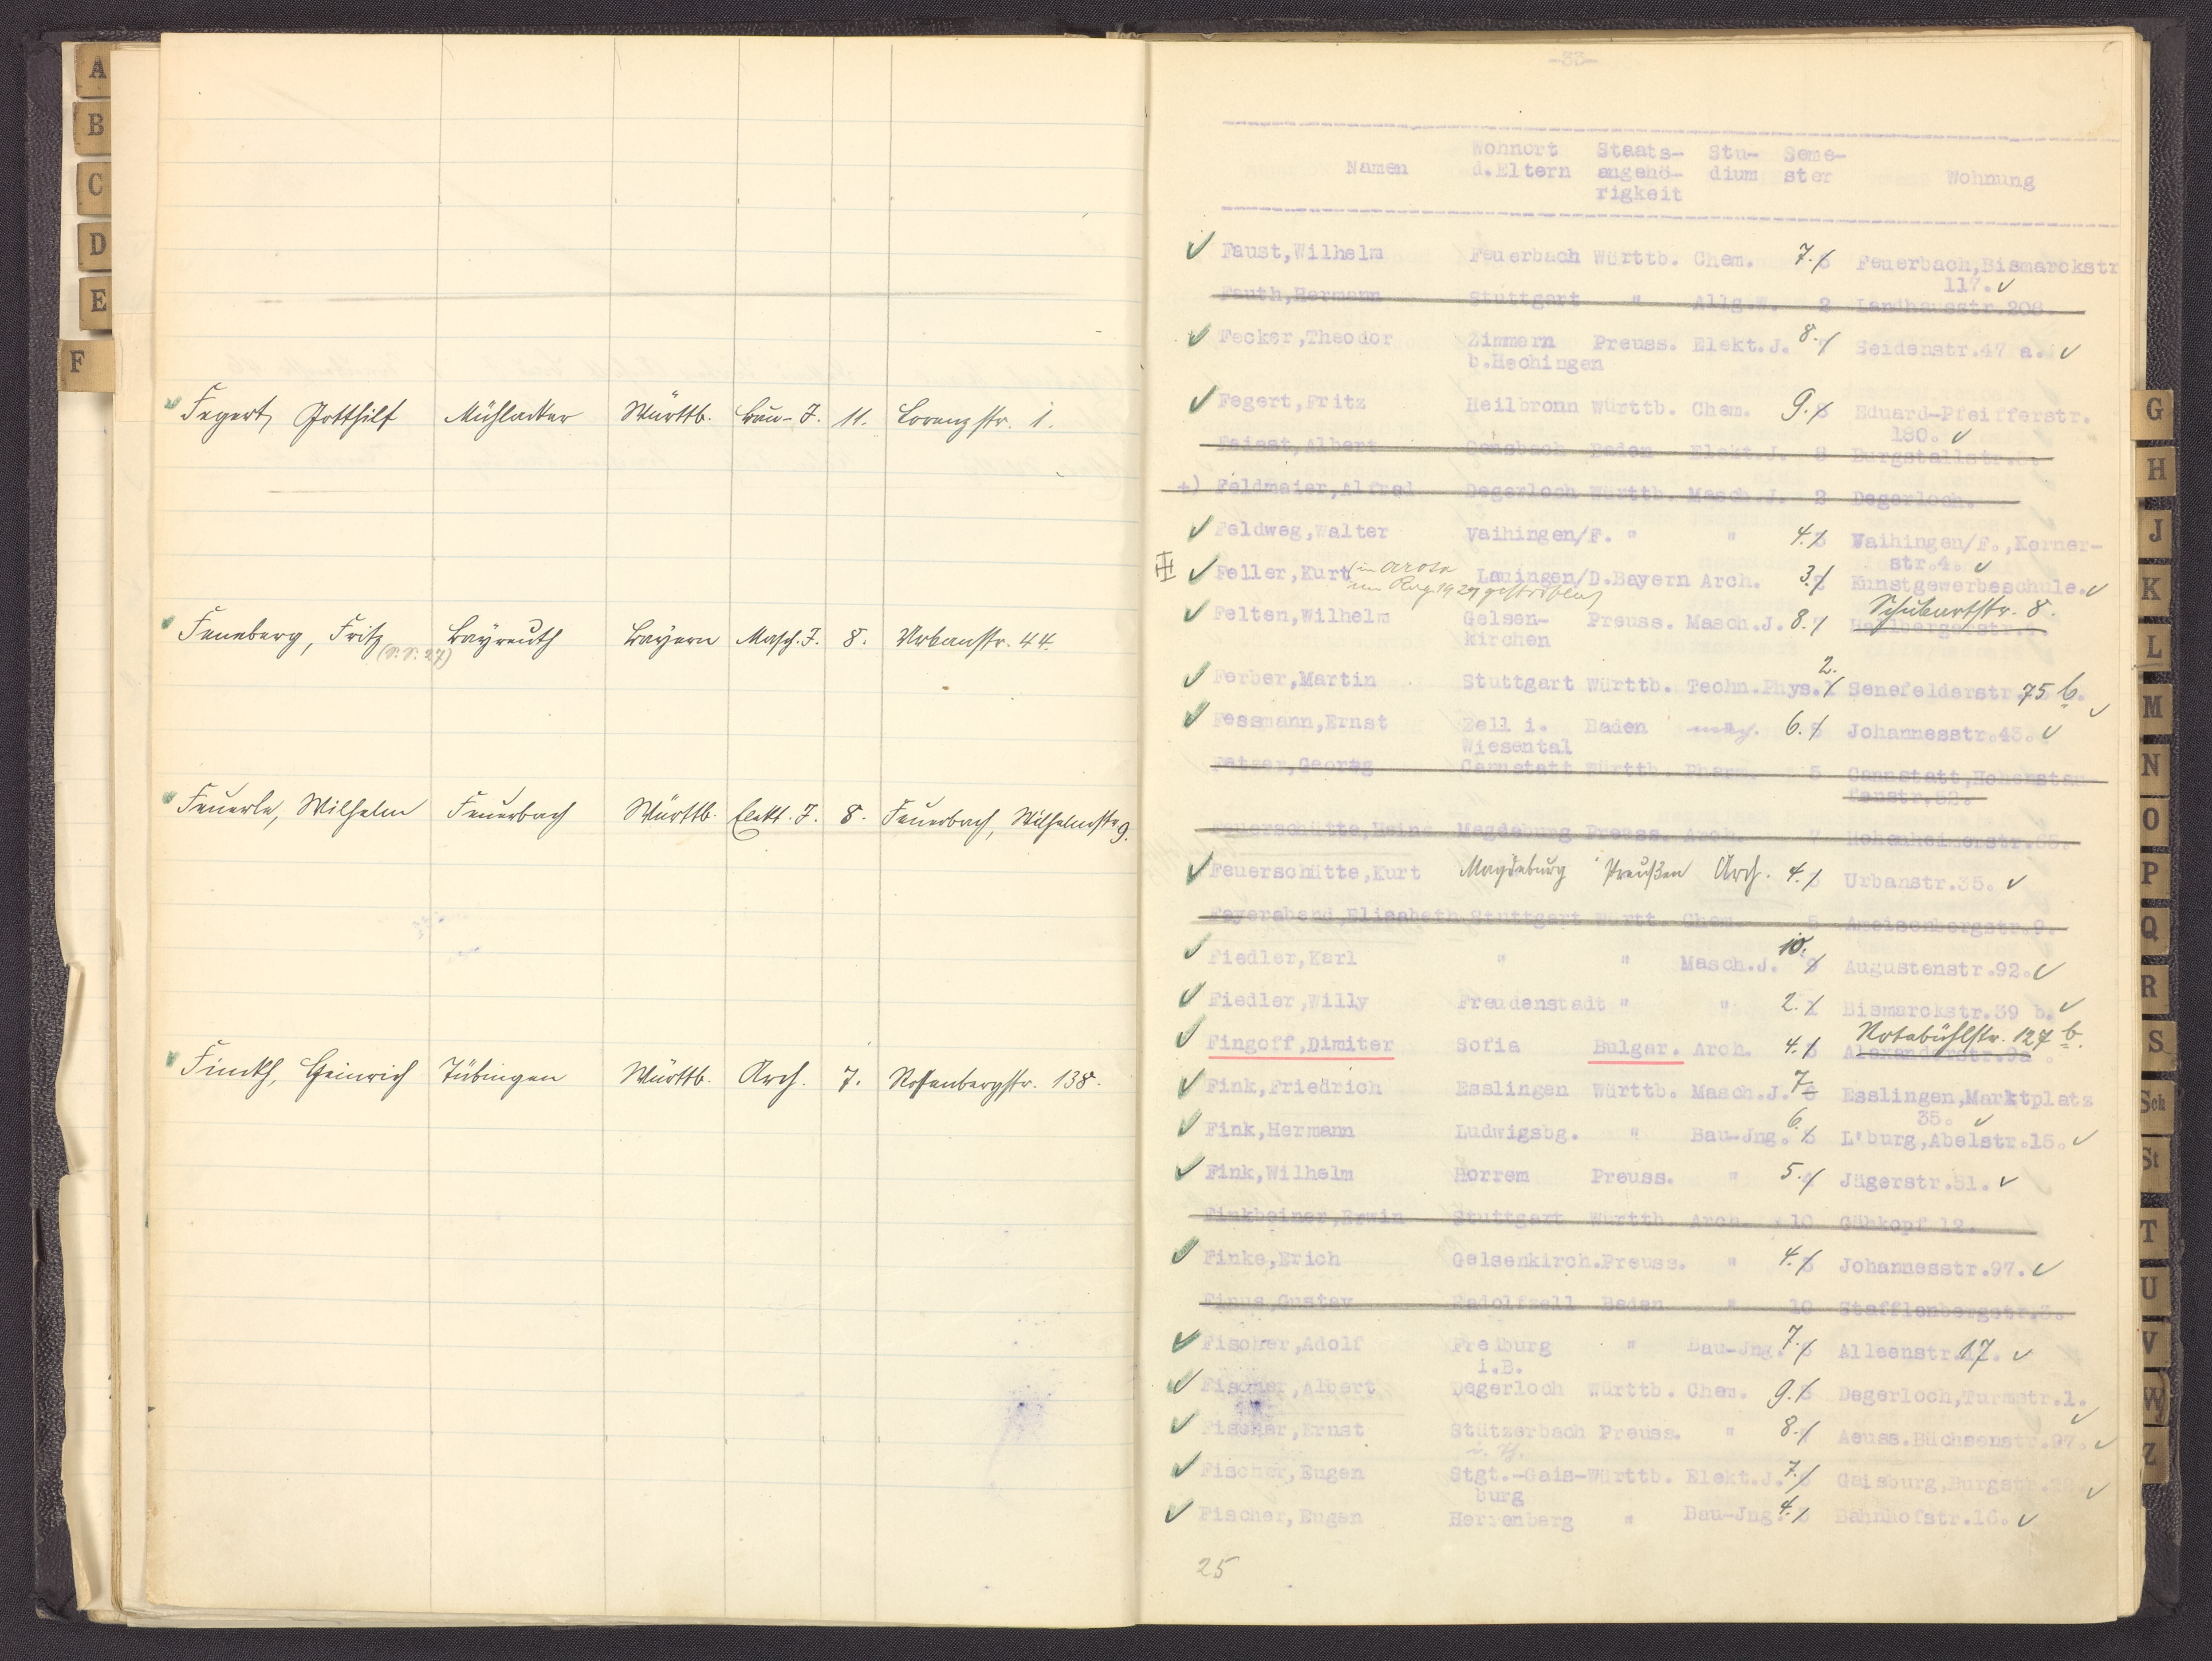 A
B
C
D
E
F
Fegert, Gotthilf Mühlacker Württb. Bau-J. 11. Lorenzstr. 1.
Feneberg, Fritz Bayreuth Bayern Masch.J. 8. Urbanstr. 44.
(S.S. 27)
Feuerle, Wilhelm Feuerbach Württb. Elekt.J. 8. Feuerbach, Wilhelmstr. 9.
Finckh, Heinrich Tübingen Württb. Arch. 7. Rosenbergstr. 138.
-33-
Namen Wohnort d.Eltern Staats- angehö- rigkeit Stu- dium Seme- ster Wohnung
Faust,Wilhelm Feuerbach Württb. Chem. 7. Feuerbach,Bismarckstr
117.
Fauth,Hermann Stuttgart " Allg.W. 2 Landhausstr.208.
Fecker,Theodor Zimmern Preuss. Elekt.J. 8. Seidenstr.47 a.
b.Hechingen
Fegert,Fritz Heilbronn Württb. Chem. 9. Eduard-Pfeifferstr.
180.
Faisst,Albert Gernsbach Baden Elekt.J. 8 Burgstallstr.
+) Feldmaier,Alfred Degerloch Württb. Masch.J. 2 Degerloch.
Feldweg,Walter Vaihingen/F. " " 4. Vaihingen/F.,Kerner-
str.4.
Feller,Kurt (in Arosa Lauingen/D.Bayern Arch. 3. Kunstgewerbeschule.
im Aug. 1927 gestorben)
Schubartstr. 8.
Felten,Wilhelm Gelsen- Preuss. Masch.J. 8.
kirchen
Ferber,Martin Stuttgart Württb. Techn.Phys. 2. Senefelderstr. 75 b.
Fessmann,Ernst Zell i. Baden 6. Johannesstr.43.
Wiesental
Fetzer,Georg Cannstatt Württb. Pharm. 5 Cannstatt,Hohenstau-
fenstr.52.
Feuerschütte,Heinz Magdeburg Preuss. Arch. " Hohenheimerstr.65.
Feuerschütte,Kurt Magdeburg Preußen Arch. 4. Urbanstr.35.
Feyerabend,Elisabeth Stuttgart Württ. Chem. 5 Ameisenbergstr.9.
Fiedler,Karl " " Masch.J. 10. Augustenstr.92.
Fiedler,Willy Freudenstadt " " 2. Bismarckstr.39 b.
Rotebühlstr. 127 b.
Fingoff,Dimiter Sofia Bulgar. Arch. 4. Alexanderstr.9a
Fink,Friedrich Esslingen Württb. Masch.J. 7 Esslingen,Marktplatz
35.
Fink,Hermann Ludwigsbg. " Bau-Jng. 6. L'burg,Abelstr.15.
Fink,Wilhelm Horrem Preuss. " 5. Jägerstr.51.
Finkbeiner,Erwin Stuttgart Württb. Arch. 10 Gähkopf 12.
Finke,Erich Gelsenkirch.Preuss. " 4. Johannesstr.97.
Finus,Gustav Radolfzell Baden " 10 Stafflenbergstr.3.
Fischer,Adolf Freiburg " Bau-Jng. 7. Alleenstr.17.
i.B.
Fischer,Albert Degerloch Württb. Chem. 9. Degerloch,Turmstr.1.
Fischer,Ernst Stützerbach Preuss. " 8. Aeuss.Büchsenstr.97.
i. Th.
Fischer,Eugen Stgt.-Gais-Württb. Elekt.J. 7. Gaisburg,Burgstr.
burg
Fischer,Eugen Herrenberg " Bau-Jng. 4. Bahnhofstr.16.
25
G
H
J
K
L
M
N
O
P
Q
R
S
Sch
St
T
U
V
W
Z